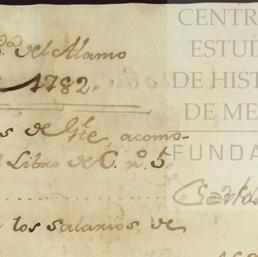 del Alamo
1782.
CENTR
ESTUD
DE HIST
DE ME
FUNDA
s de Gte, acomo-
Libro de C. nº 5
los salarios de